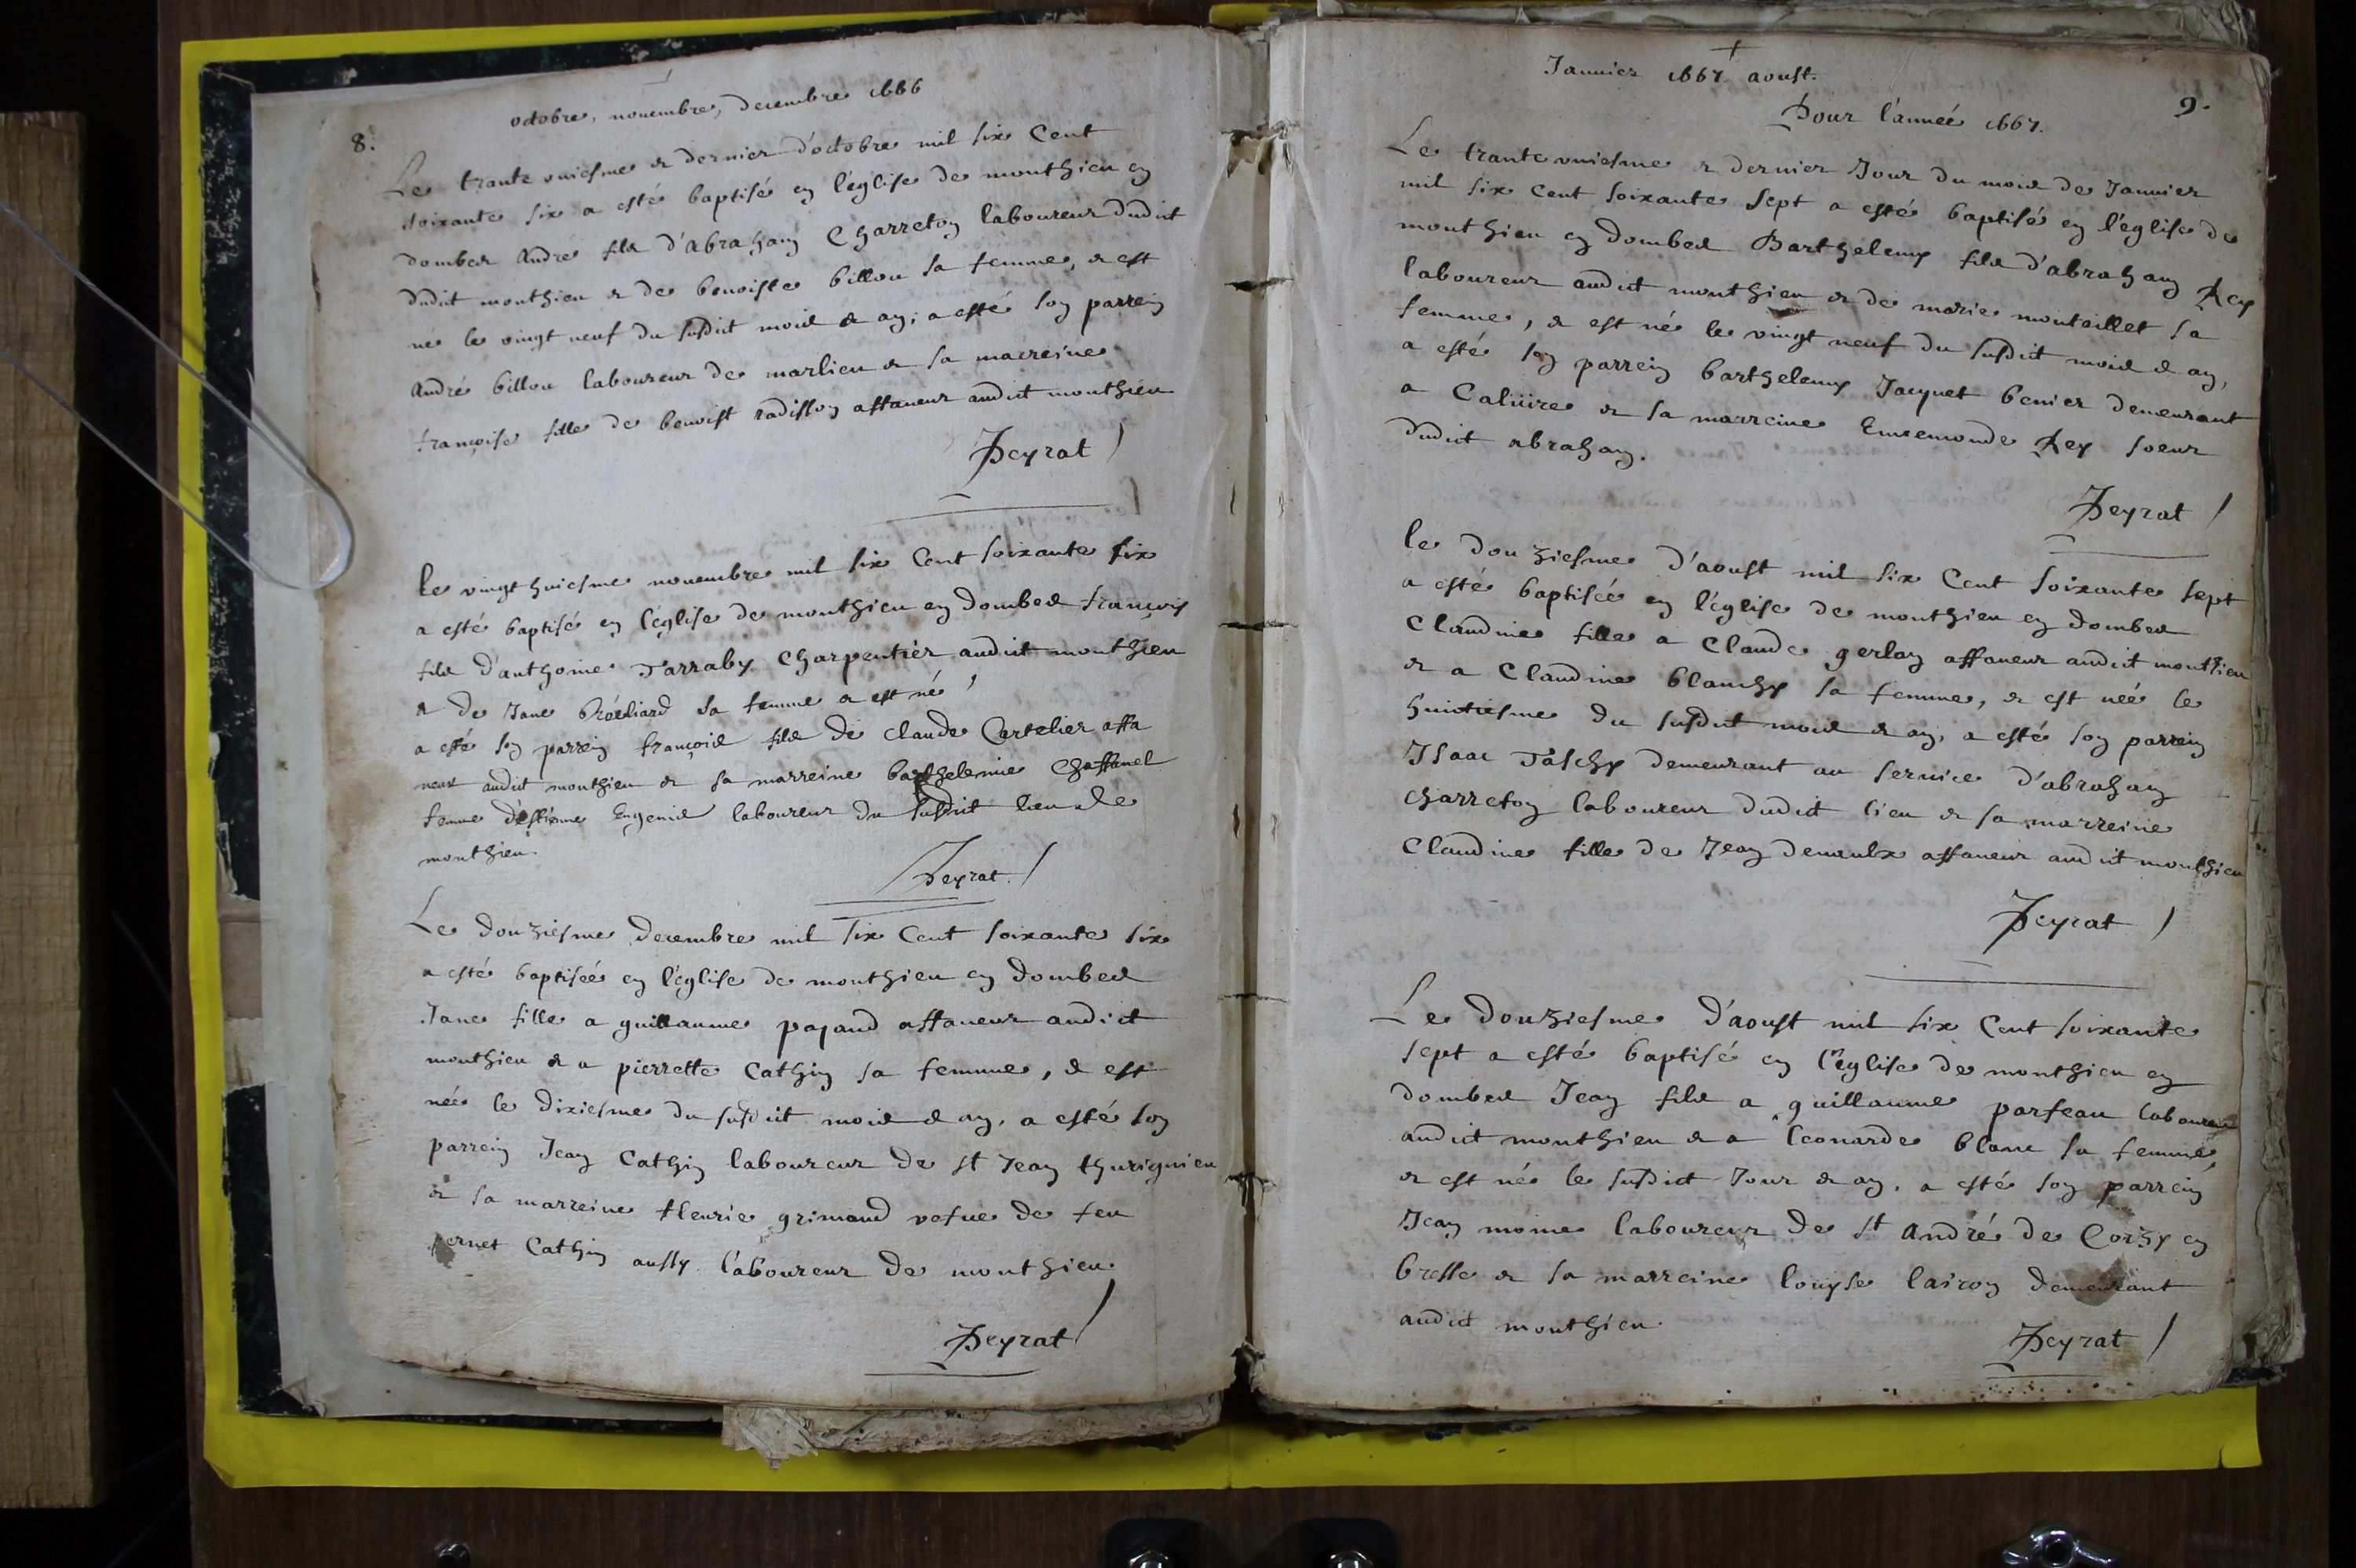 8.
octobre, nouembre, decembre 1666
Le trante vniesme & dernier d'octobre mil six Cent
soixante six a esté baptisé en l'eglise de monthieu en
dombes André fils d'Abraham Charreton laboureur dudict
dudict monthieu & de benoiste billou sa femme, & est
né le vingt neuf du susdict mois & an, a esté son parrein
André billou laboureur de marlieu & sa marreine
françoise fille de benoist radisson affaneur audict monthieu
Peyrat
le vingt huictsme nouembre mil six Cent soixante six
a esté baptisé en l'eglise de monthieu en dombes françois
fils d'anthoine Tarraby Charpentier audict monthieu
& de Jane sa femme & est né
a esté son parrein françois fils de claude Cartelier affa
neur audict monthieu & sa marreine barthelemie Chaffanel
femme d'estienne Engenie laboureur du susdict lieu de
monthieu.
Peyrat.
Le douziesme decembre mil six Cent soixante six
a esté baptiseé en l'eglise de monthieu en dombes
Jane fille a guillaume pajaud affaneur audict
monthieu & a pierrette Cathin sa femme, & est
neé le dixiesme du susdict mois & an, a esté son
parrein Jean Cathin laboureur de st Jean thurignieu
& sa marreine fleurie grimaud vefue de feu
pernet Cathin aussy laboureur de monthieu.
Peyrat
Januier 1667 aoust.
9.
Pour l'anneé 1667.
Le trante vniesme & dernier Jour du mois de Januier
mil six Cent soixante sept a esté baptisé en l'eglise de
monthieu en dombes Barthelemy fils d'abraham Rey
laboureur audict monthieu & de marie montaillet sa
femme, & est né le vingt neuf du susdict mois & an,
a esté son parrein barthelemy Jacquet benier demeurant
a Caliiire & sa marreine Ennemonde Rey soeur
dudict abraham.
Peyrat
le douziesme d'aoust mil six Cent soixante sept
a esté baptiseé en l'eglise de monthieu en dombes
Claudine fille a Claude gerlan affaneur audict monthieu
& a Claudine blanchy sa femme, & est neé le
huictiesme du susdict mois & an, a esté son parrein
Isaac Taschy demeurant au seruice d'abraham
charreton laboureur dudict lieu & sa marreine
Claudine fille de Jean denaulx affaneur audict monthieu
Peyrat
Le douziesme d'aoust mil six Cent soixante
sept a esté baptisé en l'eglise de monthieu en
dombes Jean fils a guillaume parfeau laboureur
audict monthieu & a leonarde blanc sa femme,
& est né le susdict Jour & an, a esté son parrein
Jean moine laboureur de st André de Corzy en
bresse & sa marreine louyse lairon demeurant
audict monthieu.
Peyrat